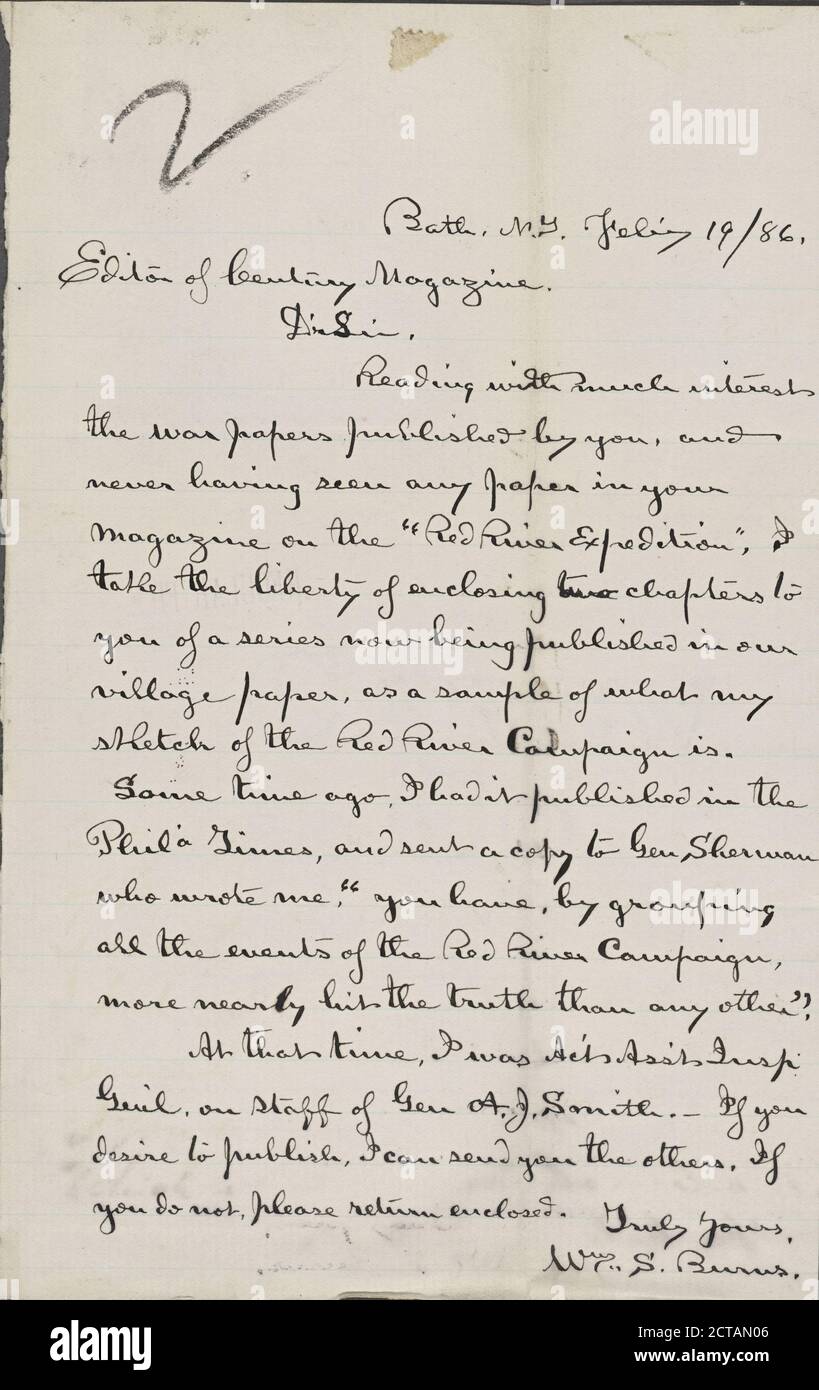 2
Bath, N.Y. Feb'y 19/86.
Editor of Century Magazine.
D'r Sir,
Reading with much interest
the war papers published by you, and
never having seen any paper in your
magazine on the "Red River Expedition", I
take the liberty of enclosing two chapters to
you of a series now being published in our
village paper, as a sample of what my
sketch of the Red River Campaign is.
Some time ago, I had it published in the
Phil'a Times, and sent a copy to Gen Sherman
who wrote me, "you have, by grouping
all the events of the Red River Campaign,
more nearly hit the truth than any other".
At that time, I was Act'g Ass't Insp
Gen'l, on staff of Gen A. J. Smith. – If you
desire to publish, I can send you the others. If
you do not, please return enclosed.
Truly Yours,
Wm. S. Burns.
alamy
a
alamy
a
alamy
alamy
Image ID: 2CTAN06
www.alamy.com